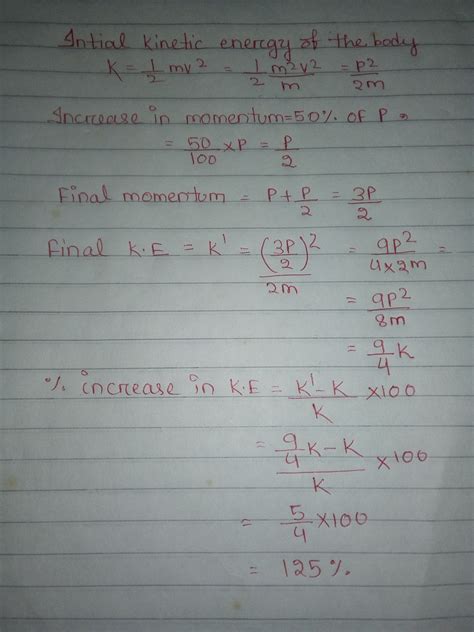 Intial kinetic energy of the body
K = 1/2 mv² = 1/2 m²v²/m = p²/2m
Increase in momentum = 50% of P
= 50/100 × P = P/2
Final momentum = P + P/2 = 3P/2
Final K.E = K' = (3P/2)²/2m = 9P²/4×2m =
= 9P²/8m
= 9/4 K
% increase in K.E = K'-K/K ×100
= 9/4 K - K/K ×100
= 5/4 ×100
= 125%